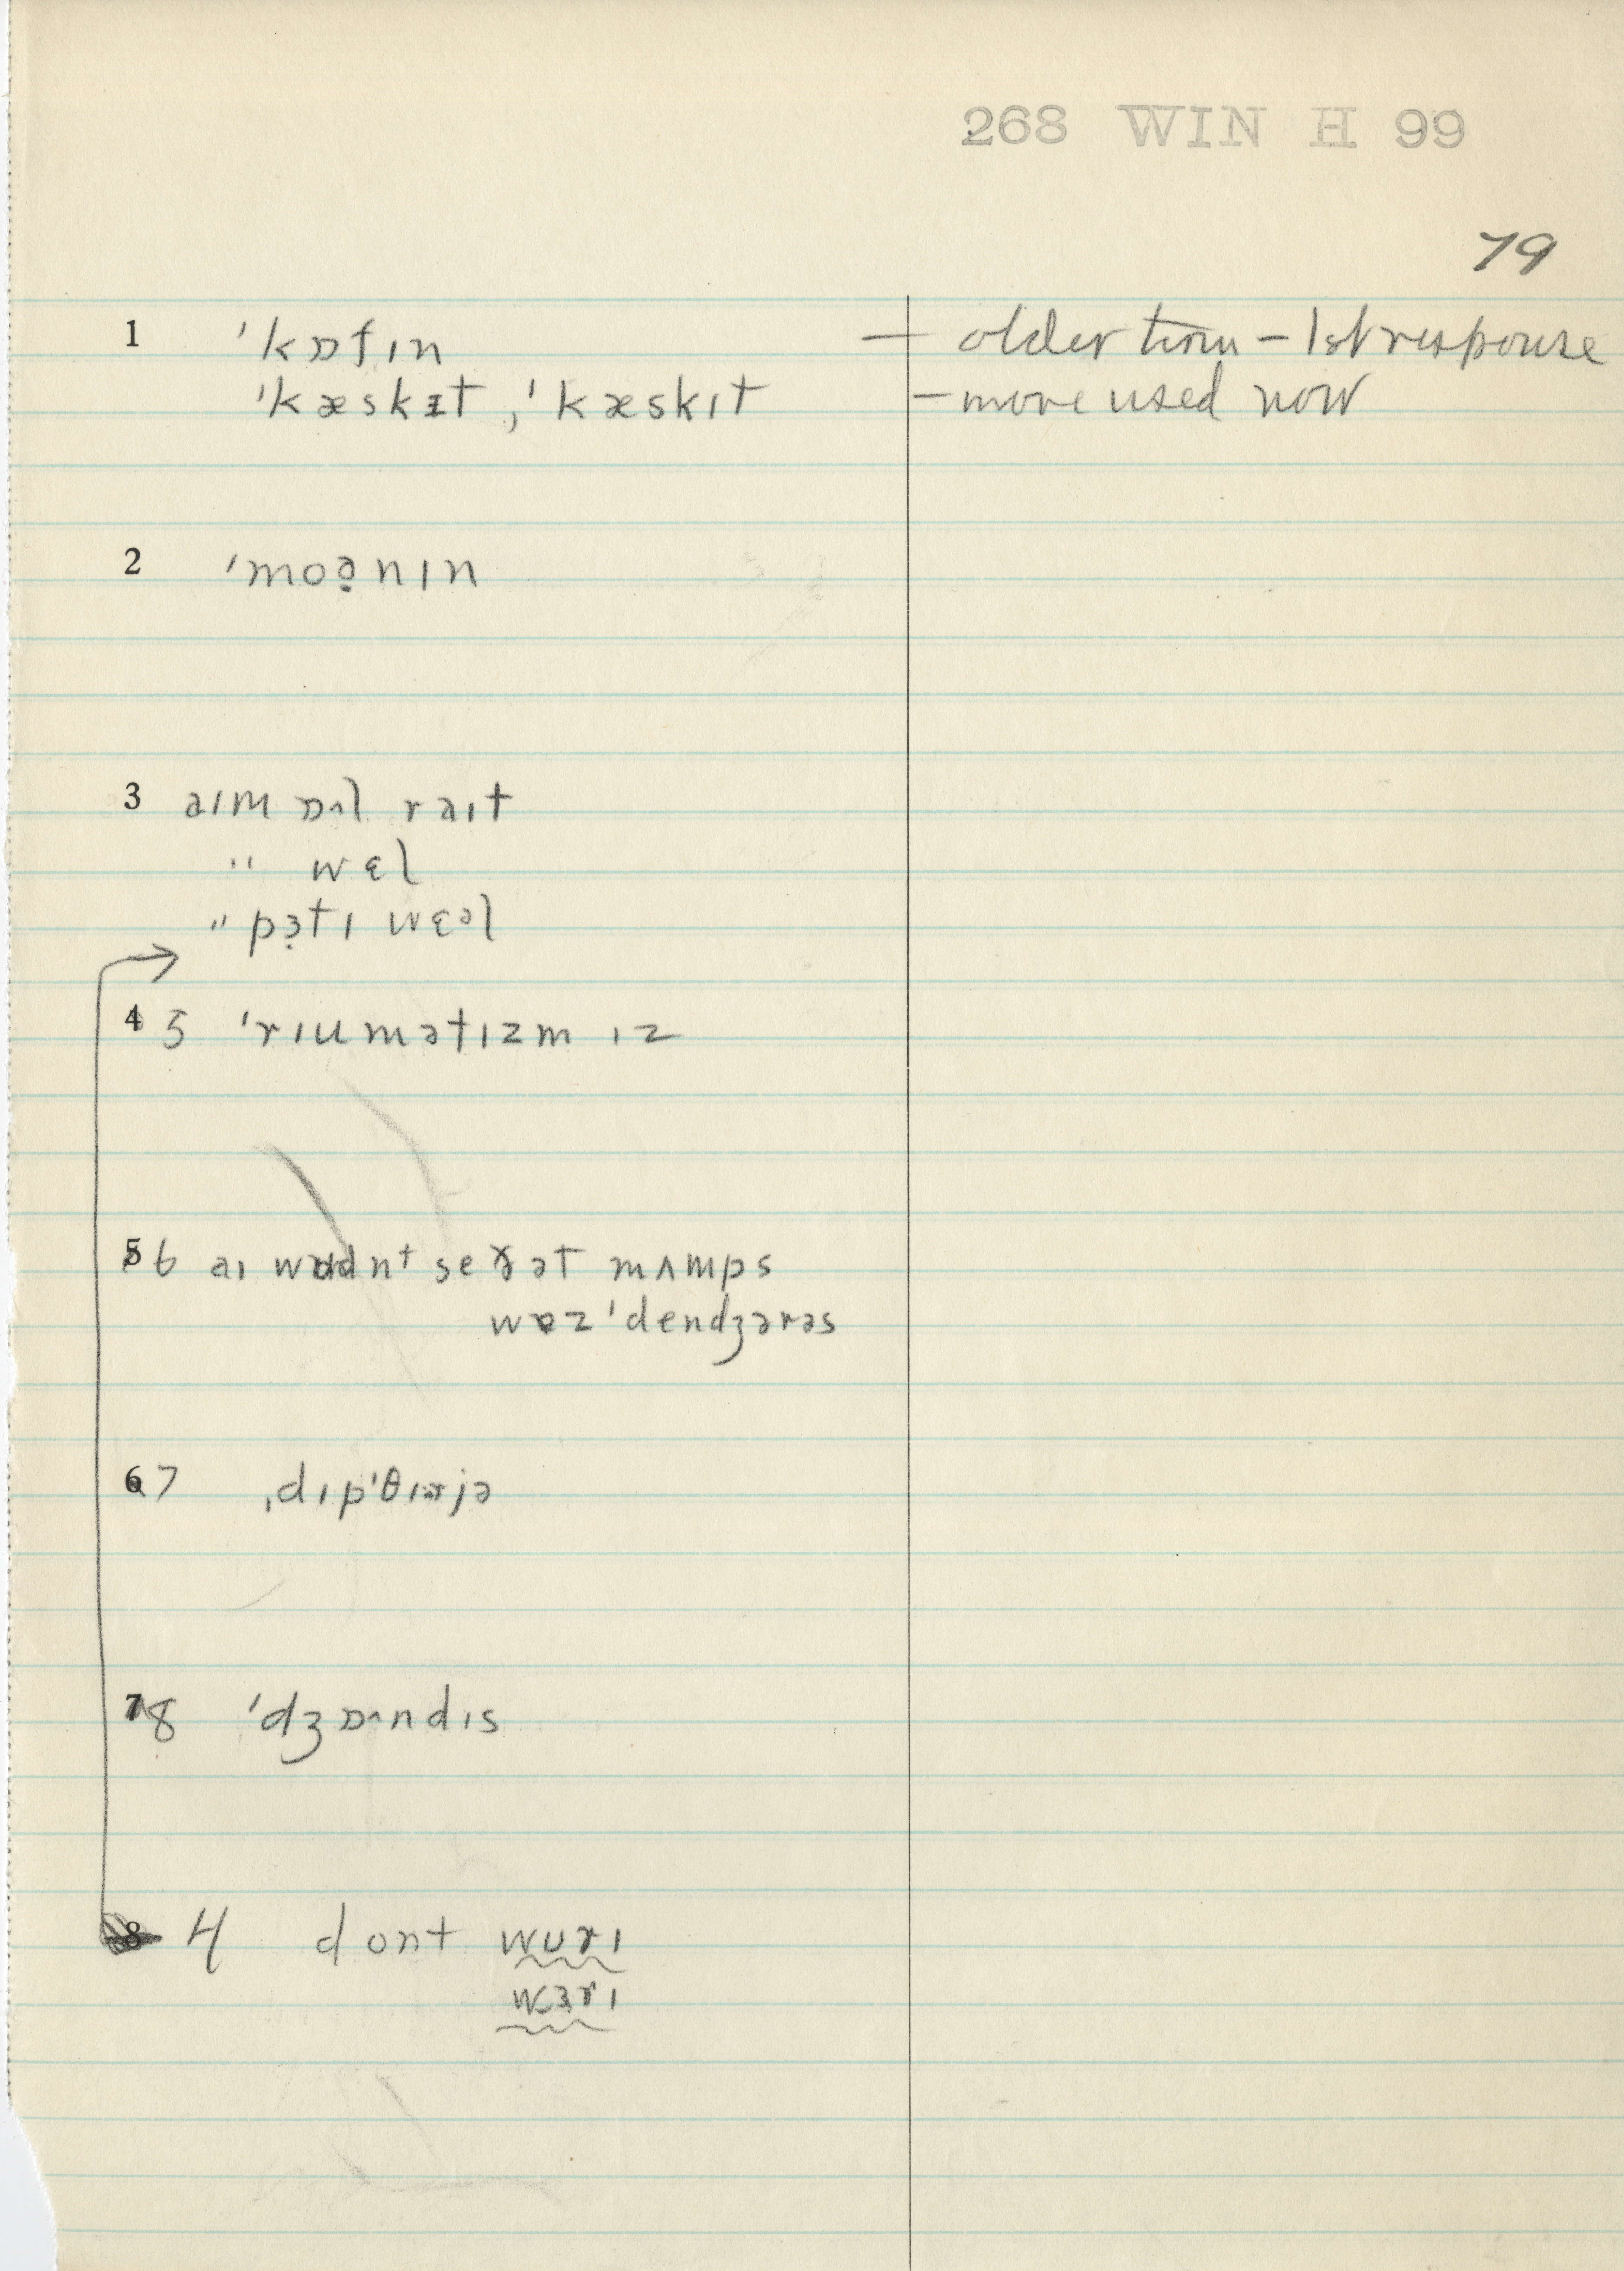 268 WIN H 99
79
1 ˈkɒfɪn — older term – 1st response
ˈkæskɪt, ˈkæskɪt – more used now
2 ˈmoə̯nɪn
3 aɪm ɒˑl raɪt
" wɛl
" pɜtɪ wɛəl
4 5 ˈrɪumətɪzm ɪz
5 6 aɪ wʊdnt se ðət mʌmps
wəz ˈdendʒərəs
6 7 ˌdɪpˈθɪrjə
7 8 ˈdʒɒˑndɪs
8 4 dont wʊrɪ
wɜrɪ